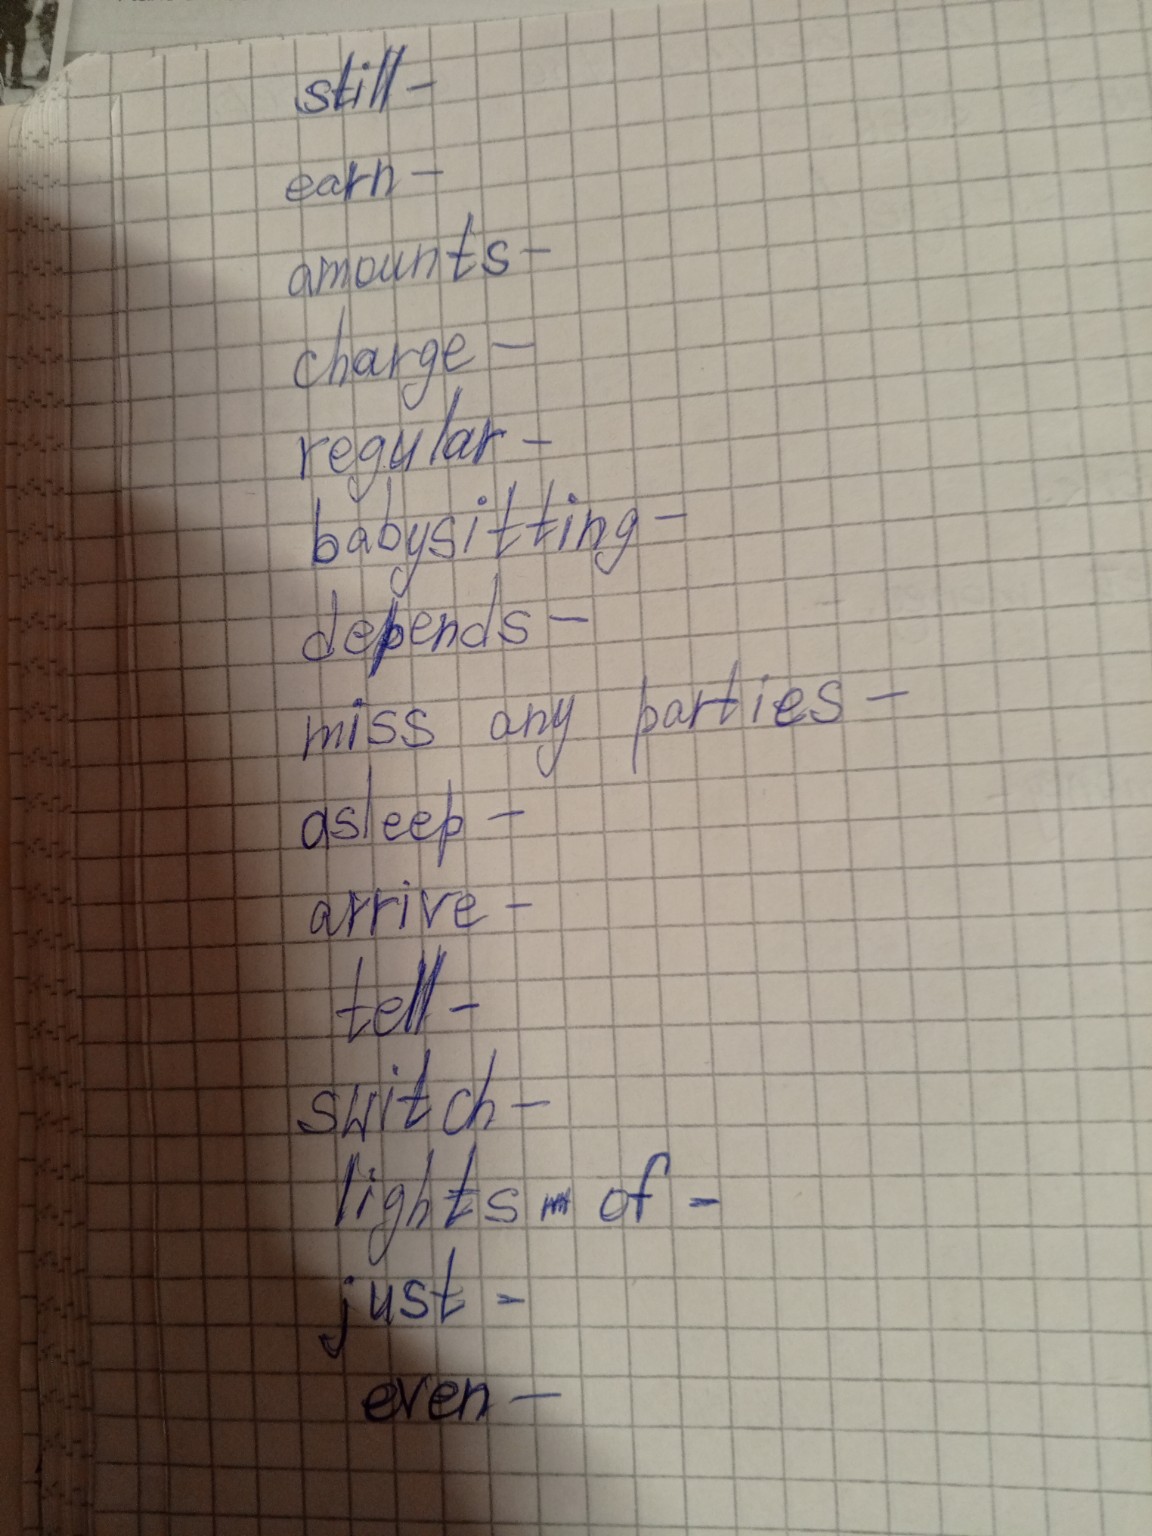 still -
earn -
amounts -
charge -
regular -
babysitting -
depends -
miss any parties -
asleep -
arrive -
tell -
switch -
lights of -
just -
even -